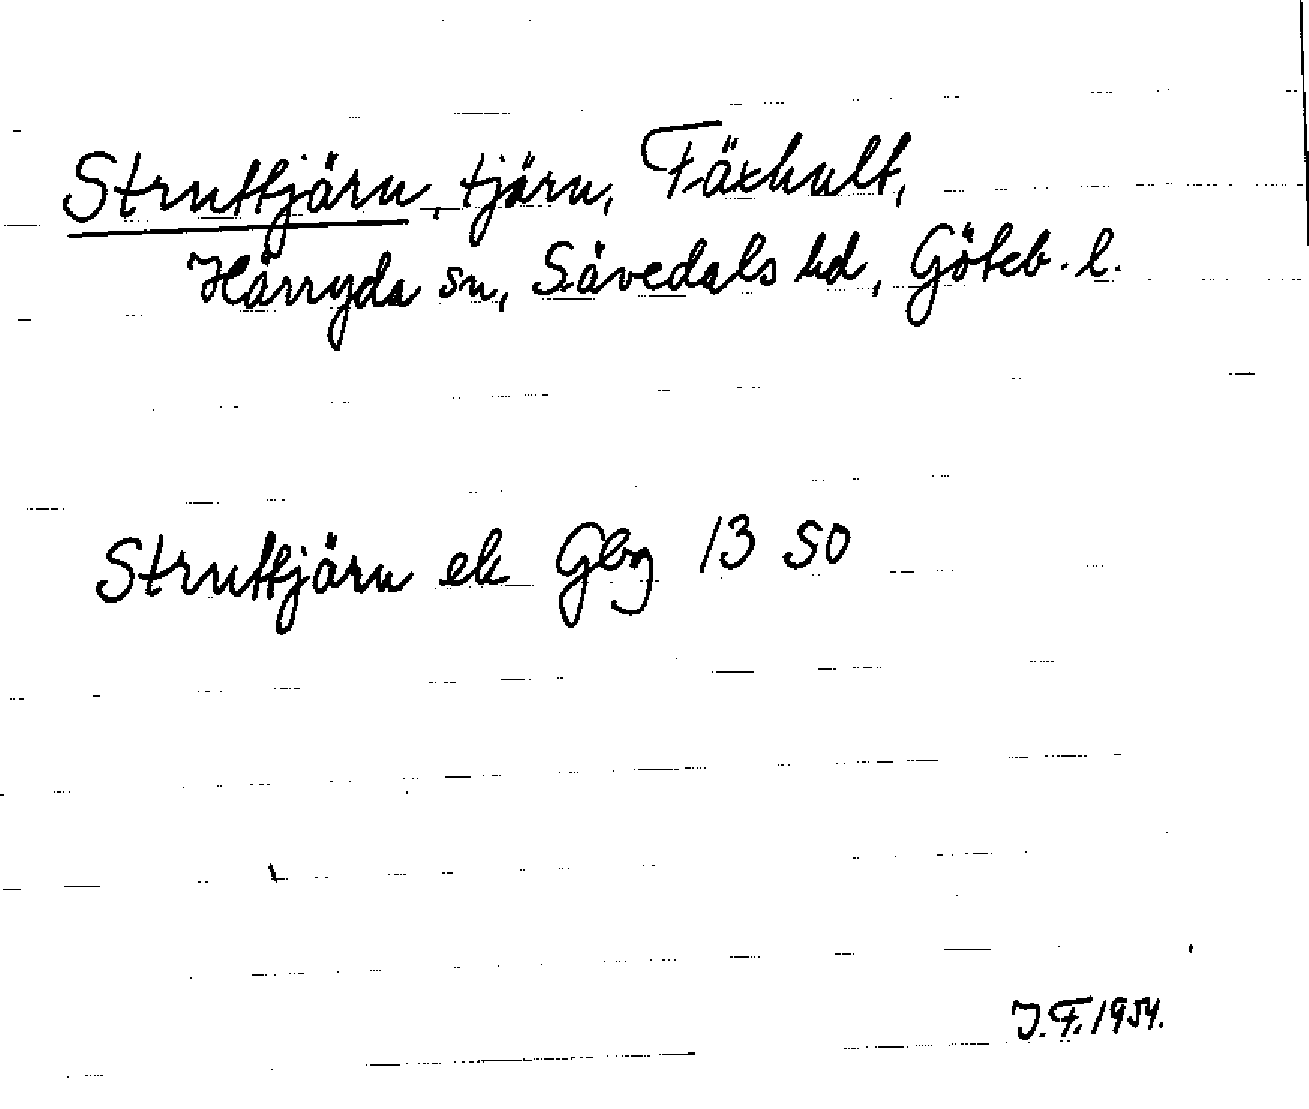 Struttjärn, tjärn, Fäxhult,
Härryda sn, Sävedals hd, Göteb. l.
Struttjärn ek Gbg 13 SO
J. F. 1954.